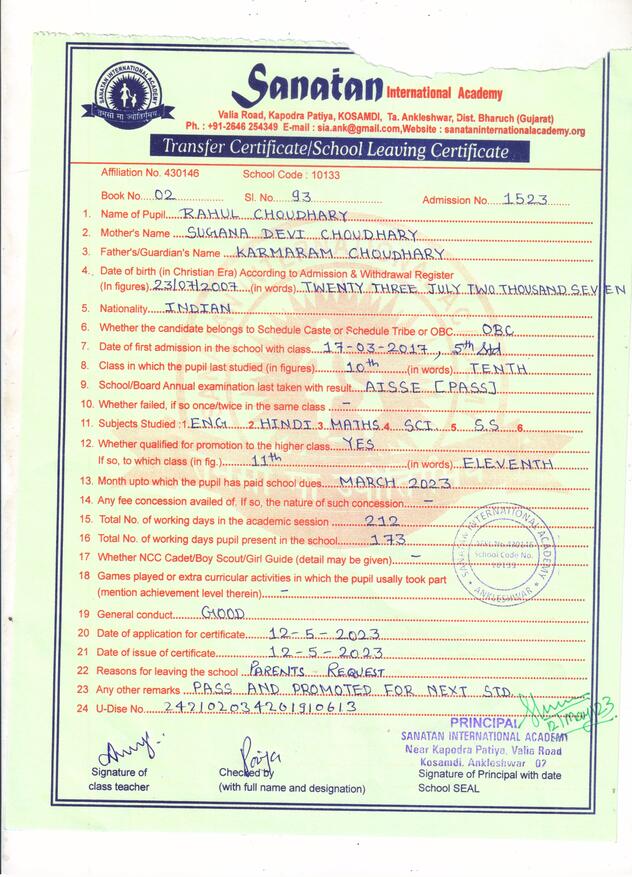 SANATAN INTERNATIONAL ACADEMY
तमसो मा ज्योतिर्गमय
Sanatan International Academy
Valia Road, Kapodra Patiya, KOSAMDI, Ta. Ankleshwar, Dist. Bharuch (Gujarat)
Ph. : +91-2646 254349 E-mail : sia.ank@gmail.com,Website : sanataninternationalacademy.org
Transfer Certificate/School Leaving Certificate
Affiliation No. 430146 School Code : 10133
Book No. 02 Sl. No. 93 Admission No. 1523
1. Name of Pupil RAHUL CHOUDHARY
2. Mother's Name SUGANA DEVI CHOUDHARY
3. Father's/Guardian's Name KARMARAM CHOUDHARY
4. Date of birth (in Christian Era) According to Admission & Withdrawal Register
(In figures) 23/07/2007 (in words) TWENTY THREE JULY TWO THOUSAND SEVEN
5. Nationality INDIAN
6. Whether the candidate belongs to Schedule Caste or Schedule Tribe or OBC OBC
7. Date of first admission in the school with class 17-03-2017, 5th Std
8. Class in which the pupil last studied (in figures) 10th (in words) TENTH
9. School/Board Annual examination last taken with result AISSE [PASS]
10. Whether failed, if so once/twice in the same class –
11. Subjects Studied : 1. ENG 2. HINDI 3. MATHS 4. SCI. 5. S.S 6.
12. Whether qualified for promotion to the higher class YES
If so, to which class (in fig.) 11th (in words) ELEVENTH
13. Month upto which the pupil has paid school dues MARCH 2023
14. Any fee concession availed of. If so, the nature of such concession –
15. Total No. of working days in the academic session 212
16 Total No. of working days pupil present in the school 173
17 Whether NCC Cadet/Boy Scout/Girl Guide (detail may be given) –
18 Games played or extra curricular activities in which the pupil usally took part
(mention achievement level therein) –
19 General conduct GOOD
20 Date of application for certificate 12-5-2023
21 Date of issue of certificate 12-5-2023
22 Reasons for leaving the school PARENTS REQUEST
23 Any other remarks PASS AND PROMOTED FOR NEXT STD.
24 U-Dise No. 242102034201910613
SANATAN INTERNATIONAL ACADEMY
School Code No.
ANKLESHWAR
PRINCIPAL
SANATAN INTERNATIONAL ACADEMY
Near Kapodra Patiya, Valia Road
Kosamdi, Ankleshwar 02
Pooja
Signature of class teacher
Checked by (with full name and designation)
Signature of Principal with date School SEAL